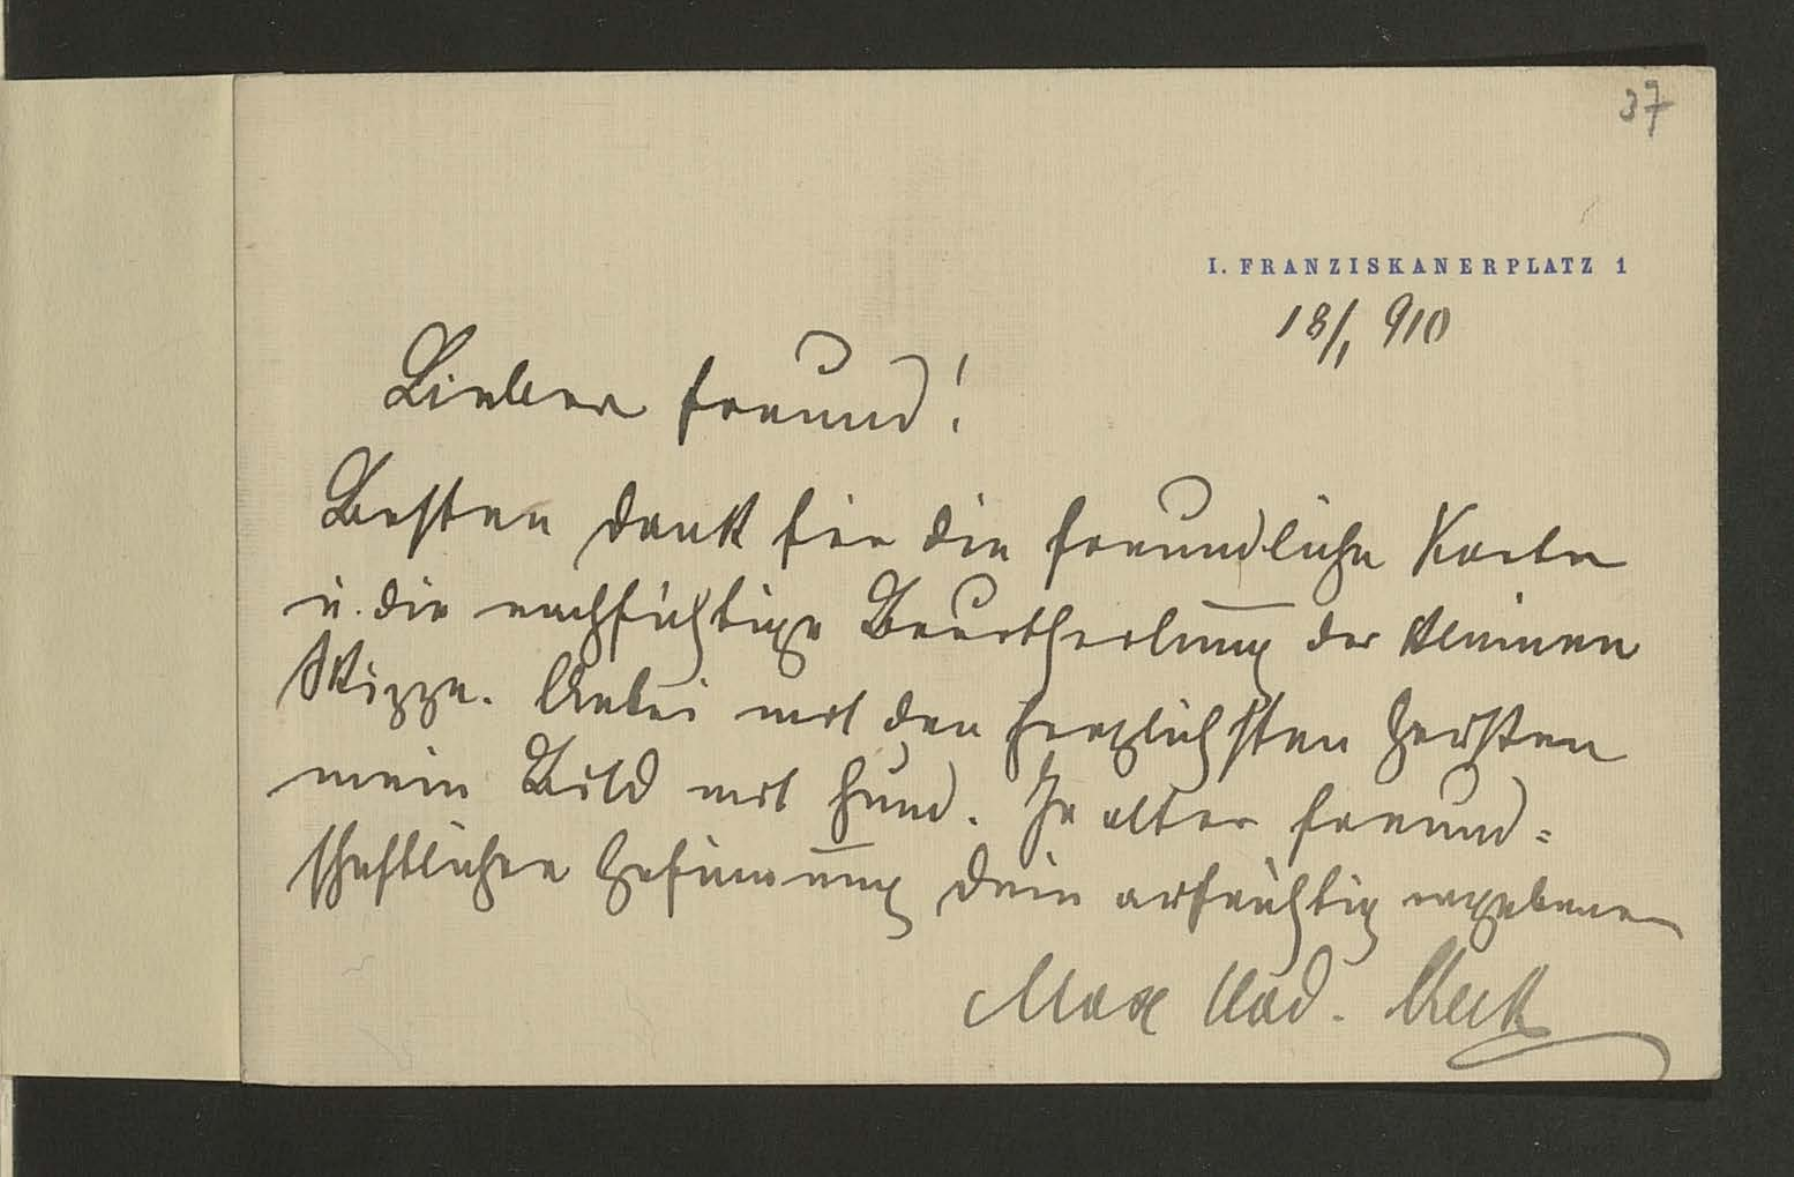 37
I. FRANZISKANERPLATZ 1
18/1 910
Lieber Freund!
Besten Dank für die freundliche Karte
u. die nachsichtige Beurtheilung der kleinen
Skizze. Anbei mit den herzlichsten Grüßen
mein Bild mit Hund. In alter freund=
schaftlicher Gesinnung Dein aufrichtig ergebener
Max Wlad. Beck